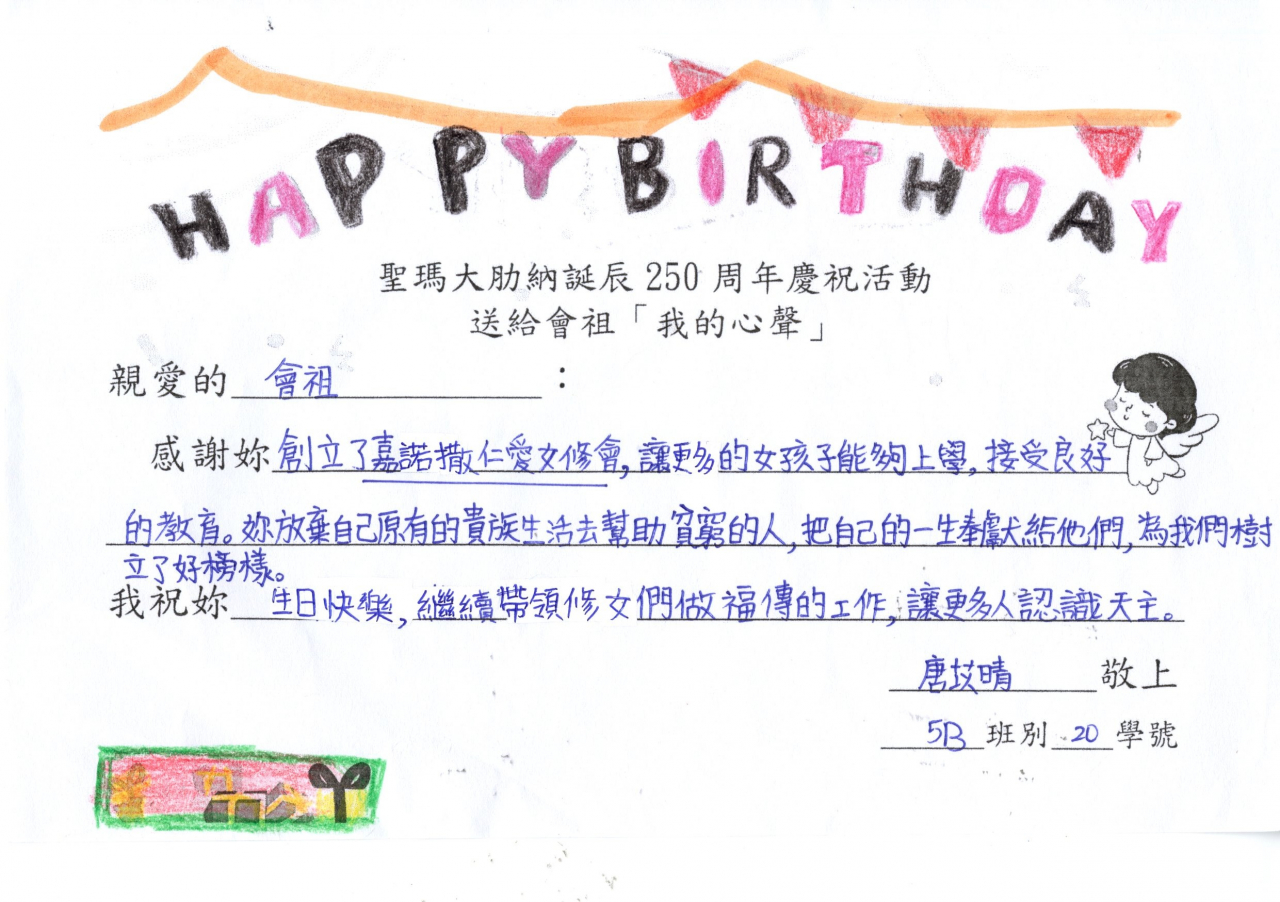 HAPPY BIRTHDAY
聖瑪大肋納誕辰 250 周年慶祝活動
送給會祖「我的心聲」
親愛的 會祖 :
感謝妳創立了嘉諾撒仁愛女修會,讓更多的女孩子能夠上學,接受良好
的教育。妳放棄自己原有的貴族生活去幫助貧窮的人,把自己的一生奉獻給他們,為我們樹
立了好榜樣。
我祝妳 生日快樂,繼續帶領修女們做福傳的工作,讓更多人認識天主。
唐苡晴 敬上
5B 班別 20 學號